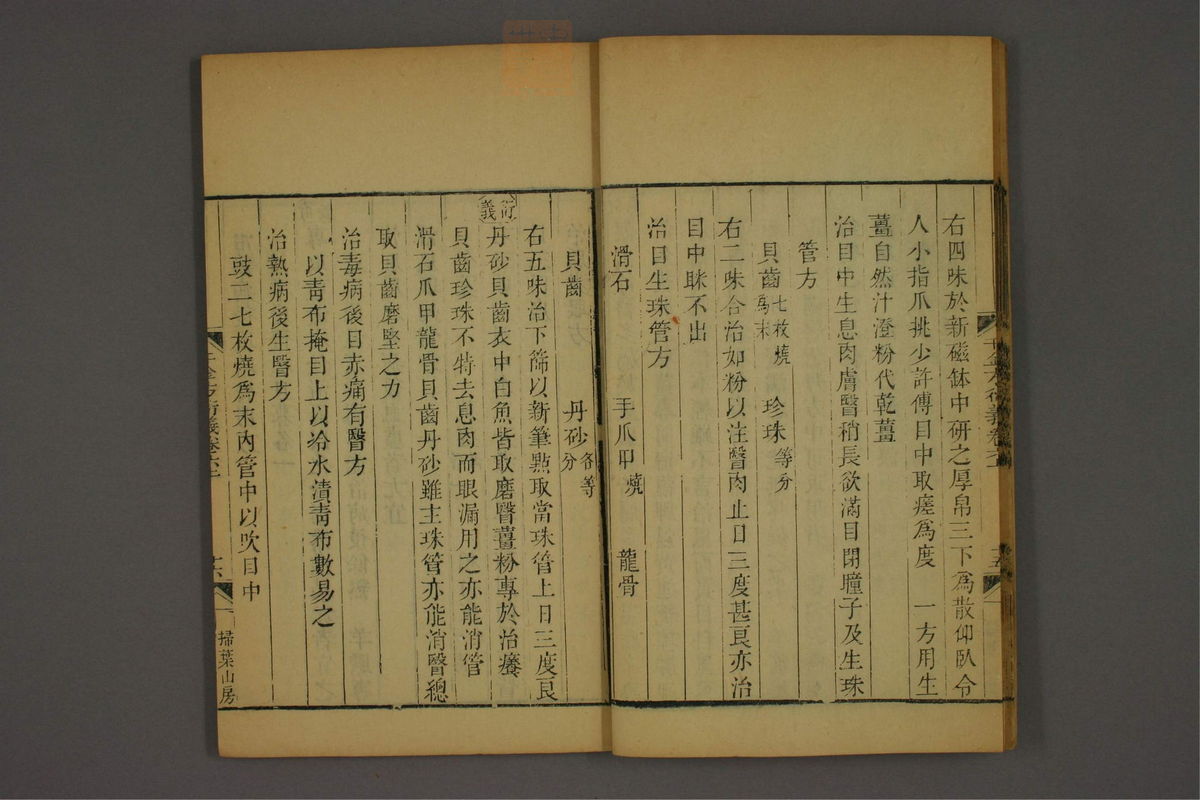 右四味於新磁鉢中研之厚帛三下為散仰臥令
人小指爪挑少許傅目中取瘥為度　一方用生
薑自然汁澄粉代乾薑
治目中生息肉膚瞖稍長欲滿目閉瞳子及生珠
管方
貝齒七枚燒為末　珍珠等分
右二味合治如粉以注瞖肉止日三度甚良亦治
目中眯不出
治目生珠管方
滑石　手爪甲燒　龍骨
貝齒　丹砂各等分
右五味治下篩以新筆點取當珠管上日三度良
衍義
丹砂貝齒衣中白魚皆取磨瞖薑粉專於治癢
貝齒珍珠不特去息肉而眼漏用之亦能消管
滑石爪甲龍骨貝齒丹砂雖主珠管亦能消瞖總
取貝齒磨堅之力
治毒病後目赤痛有瞖方
以青布掩目上以冷水漬青布數易之
治熱病後生瞖方
豉二七枚燒為末內管中以吹目中
千金方衍義卷六上
十六
掃葉山房